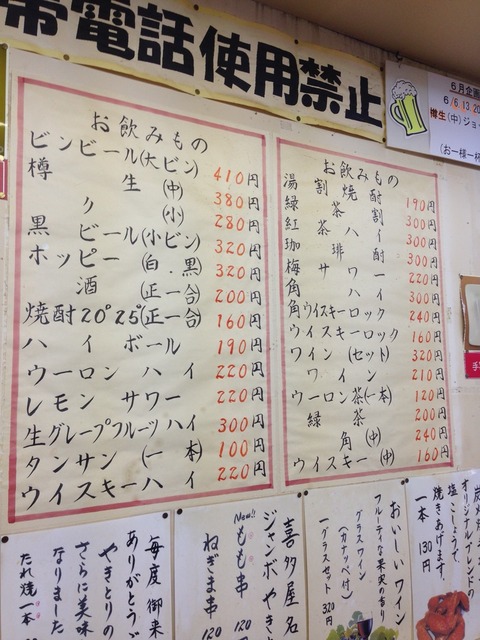 帯電話使用禁止
6月企画
6/6.13.20
樽生(中)ジョ
(お一様一杯
お飲みもの
ビンビール(大ビン) 410円
樽生(中) 380円
〃(小) 280円
黒ビール(小ビン) 320円
ホッピー(白・黒) 320円
酒(正一合) 200円
焼酎20°25°(正一合) 160円
ハイボール 190円
ウーロンハイ 220円
レモンサワー 220円
生グレープフルーツハイ 300円
タンサン(一本) 100円
ウイスキーハイ 220円
お飲みもの
湯割焼酎 190円
緑茶割 300円
紅茶ハイ 300円
珈琲酎 300円
梅サワー 220円
角ハイ 300円
角ウイスキーロック 240円
ウイスキーロック 160円
ワイン(セット) 320円
ワイン 210円
ウーロン茶(一本) 120円
緑茶 200円
角(中) 240円
ウイスキー(中) 160円
オリジナルブレンドの
塩こしょうで、
焼きあげます。
一本 130円
おいしいワイン
フルーティな果実の香り
グラスワイン
(カナッペ付)
一グラスセット 320円
喜多屋名
ジャンボやき
New!!
もも串 120
ねぎま串 120
毎度御来
ありがとうご
やきとりの
さらに美味
なりました
たれ焼一本